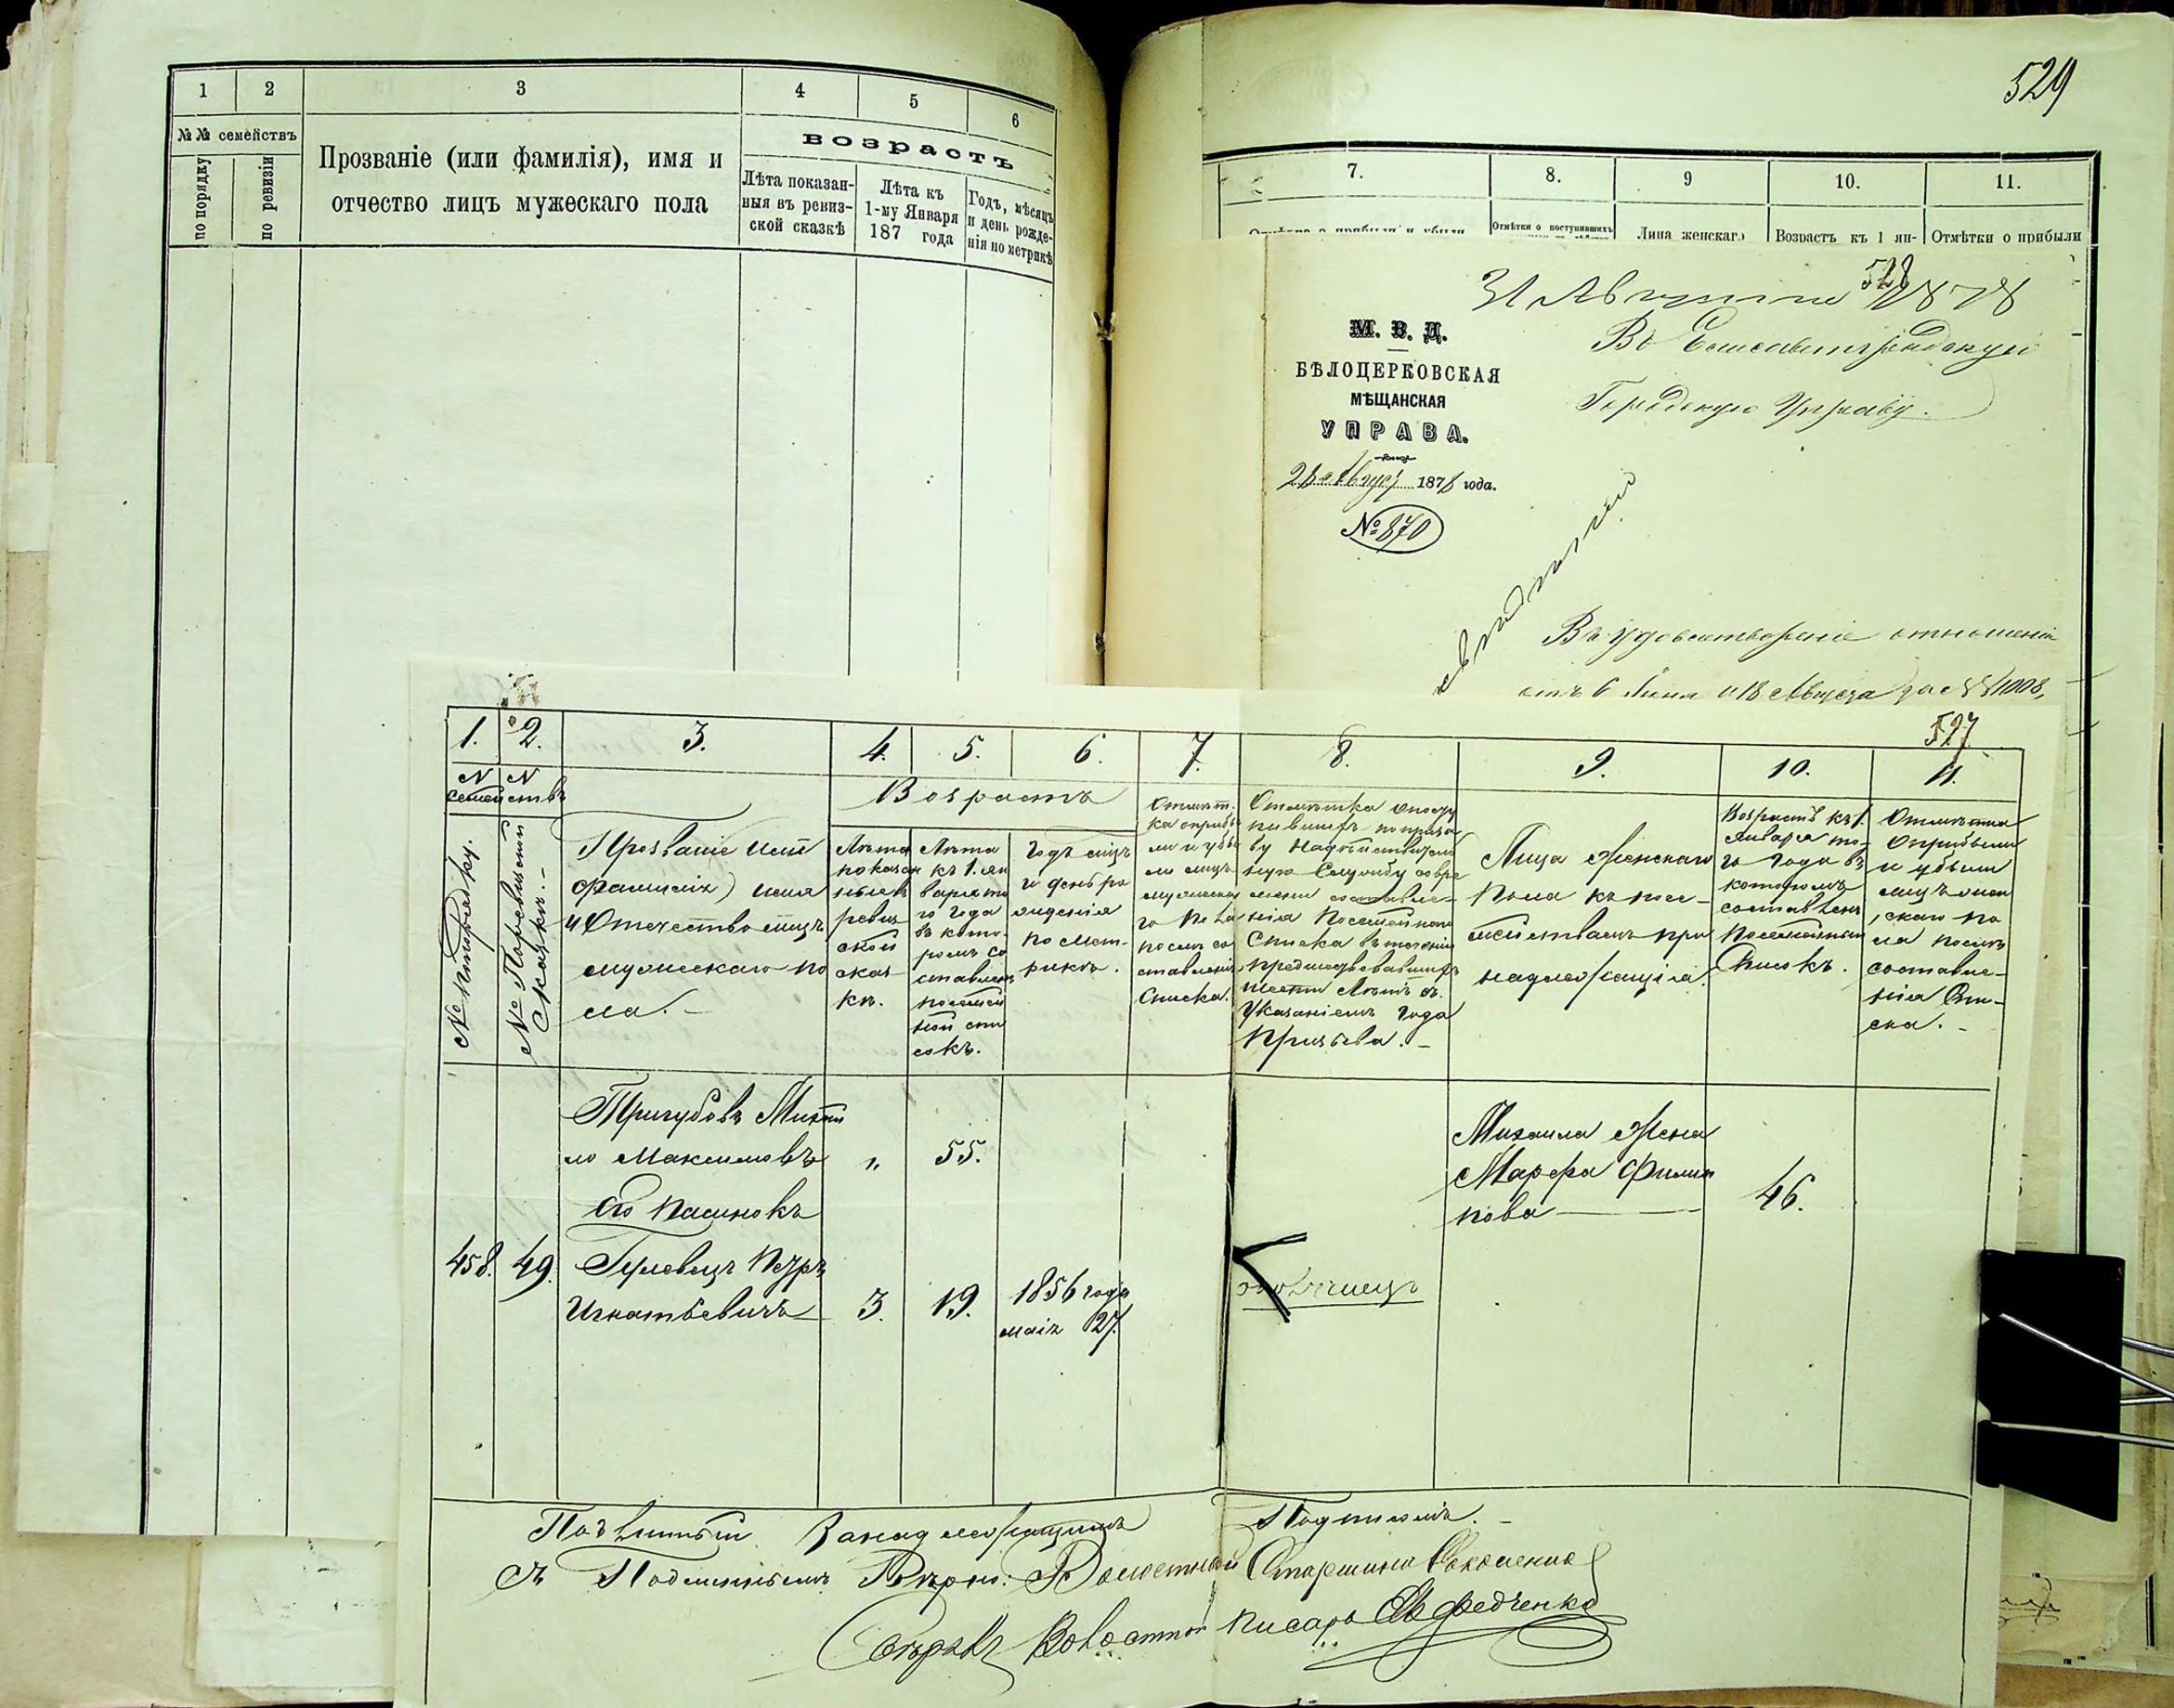 1 2 3 4 5 6
№ № семействъ
по порядку
по ревизіи
Прозваніе (или фамилія), имя и
отчество лицъ мужескаго пола
возрастъ
Лѣта показан-
ныя въ ревиз-
ской сказкѣ
Лѣта къ
1-му Января
187 года
Годъ, мѣсяцъ
и день рожде-
нія по метрикѣ
529
7. 8. 9 10. 11.
Отмѣтки о прибыли и убыли
Отмѣтки о поступившихъ
Лица женскаго
Возрастъ къ 1 ян-
Отмѣтки о прибыли
528
31 Августа 1878
М. В. Д.
БѢЛОЦЕРКОВСКАЯ
МѢЩАНСКАЯ
УПРАВА.
28 Авгус 1878 года.
№ 870
Въ Елисаветградскую
Городскую Управу.
Въ удовлетвореніе отношенія
отъ 6 Іюня и 18 Августа за №№ 1008,
527
1. 2. 3. 4. 5. 6. 7. 8. 9. 10. 11.
N N
семействъ
№ по порядку.
№ По ревизской
Сказкѣ. –
Прозваніе (или
фамилія) имя
и Отчество лицъ
мужескаго по
ла. –
Возрастъ
Лѣта
показан
ныя въ
ревиз
ской
сказ
кѣ.
Лѣта
къ 1. ян
варя то
го года
въ кото-
ромъ со
ставленъ
посемей
ной спи
сокъ.
Годъ мѣц
и день ро
жденія
по мет-
рикѣ.
Отмѣт.
ка о прибы
ли и убы
ли лицъ
мужеска
го пола
послѣ со
ставленія
Списка.
Отмѣтка о посту
пившихъ по призы
ву на дѣйствитель
ную Службу во вре
мени составле-
нія Посемейнаго
Списка въ теченіи
предшедствовавшихъ
шести лѣтъ съ
Указаніемъ года
призыва. –
Лица женскаго
пола къ се-
мействамъ при
надлежащія.
Возрастъ къ 1.
Января то-
го года въ
которомъ
составленъ
Посемейный
Списокъ.
Отмѣтка
о прибыли
и убыли
лицъ жен
скаго по
ла послѣ
составле-
нія Спи-
ска. –
Тригубовъ Михаи
ло Максимовъ „ 55.
Его пасинокъ
458. 49. Гулевецъ Петръ
Игнатьевичъ 3. 19. 1856 года
маія 27.
Михаила Жена
Марфа Филип
пова 46.
Подлинный За надлежащимъ Подписомъ. –
Съ Подлиннымъ Вѣрно: Волостной Старшина
Свѣрялъ Волостной писарь Федченко